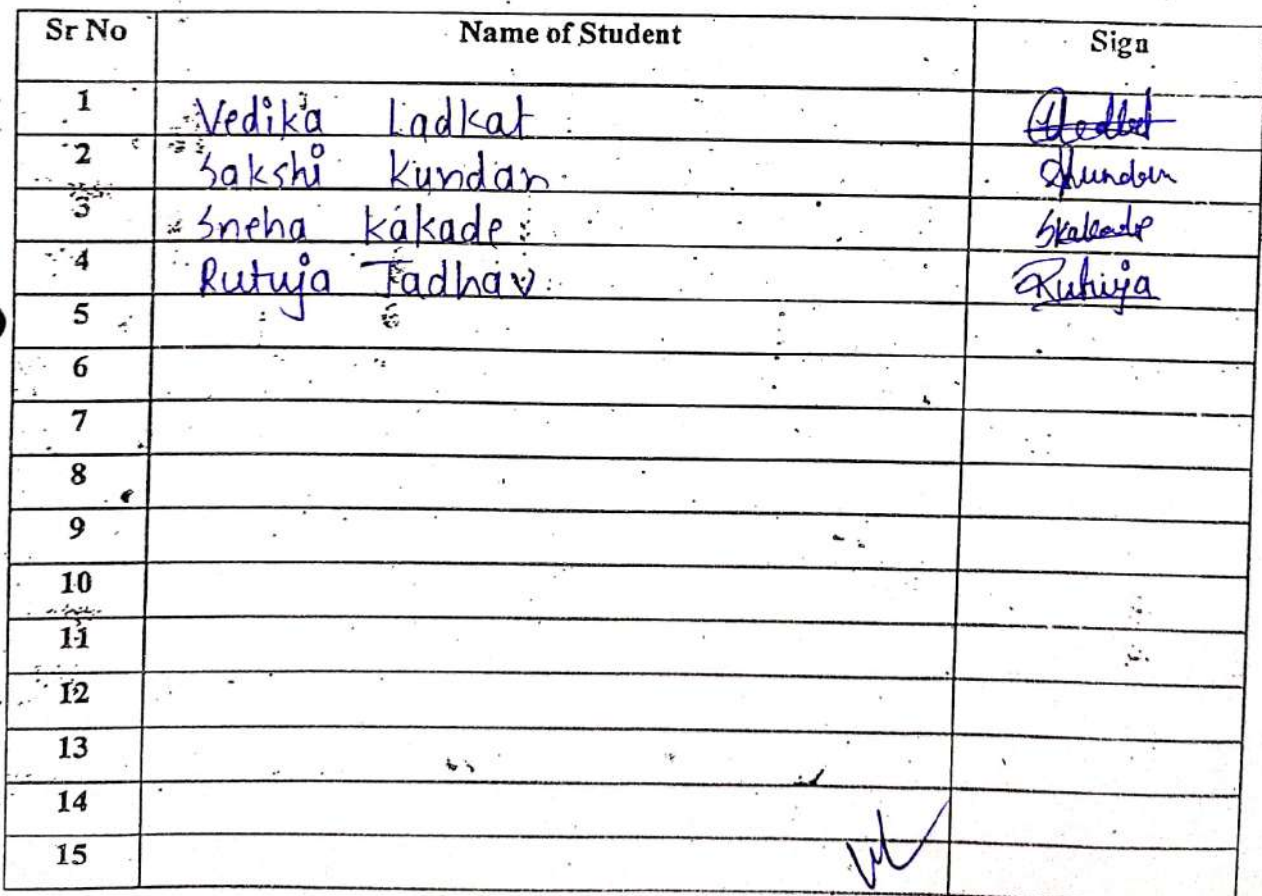 Sr No Name of Student Sign
1 Vedika Ladkat
2 Sakshi Kundan
3 Sneha Kakade Skakade
4 Rutuja Jadhav Rutuja
5
6
7
8
9
10
11
12
13
14
15